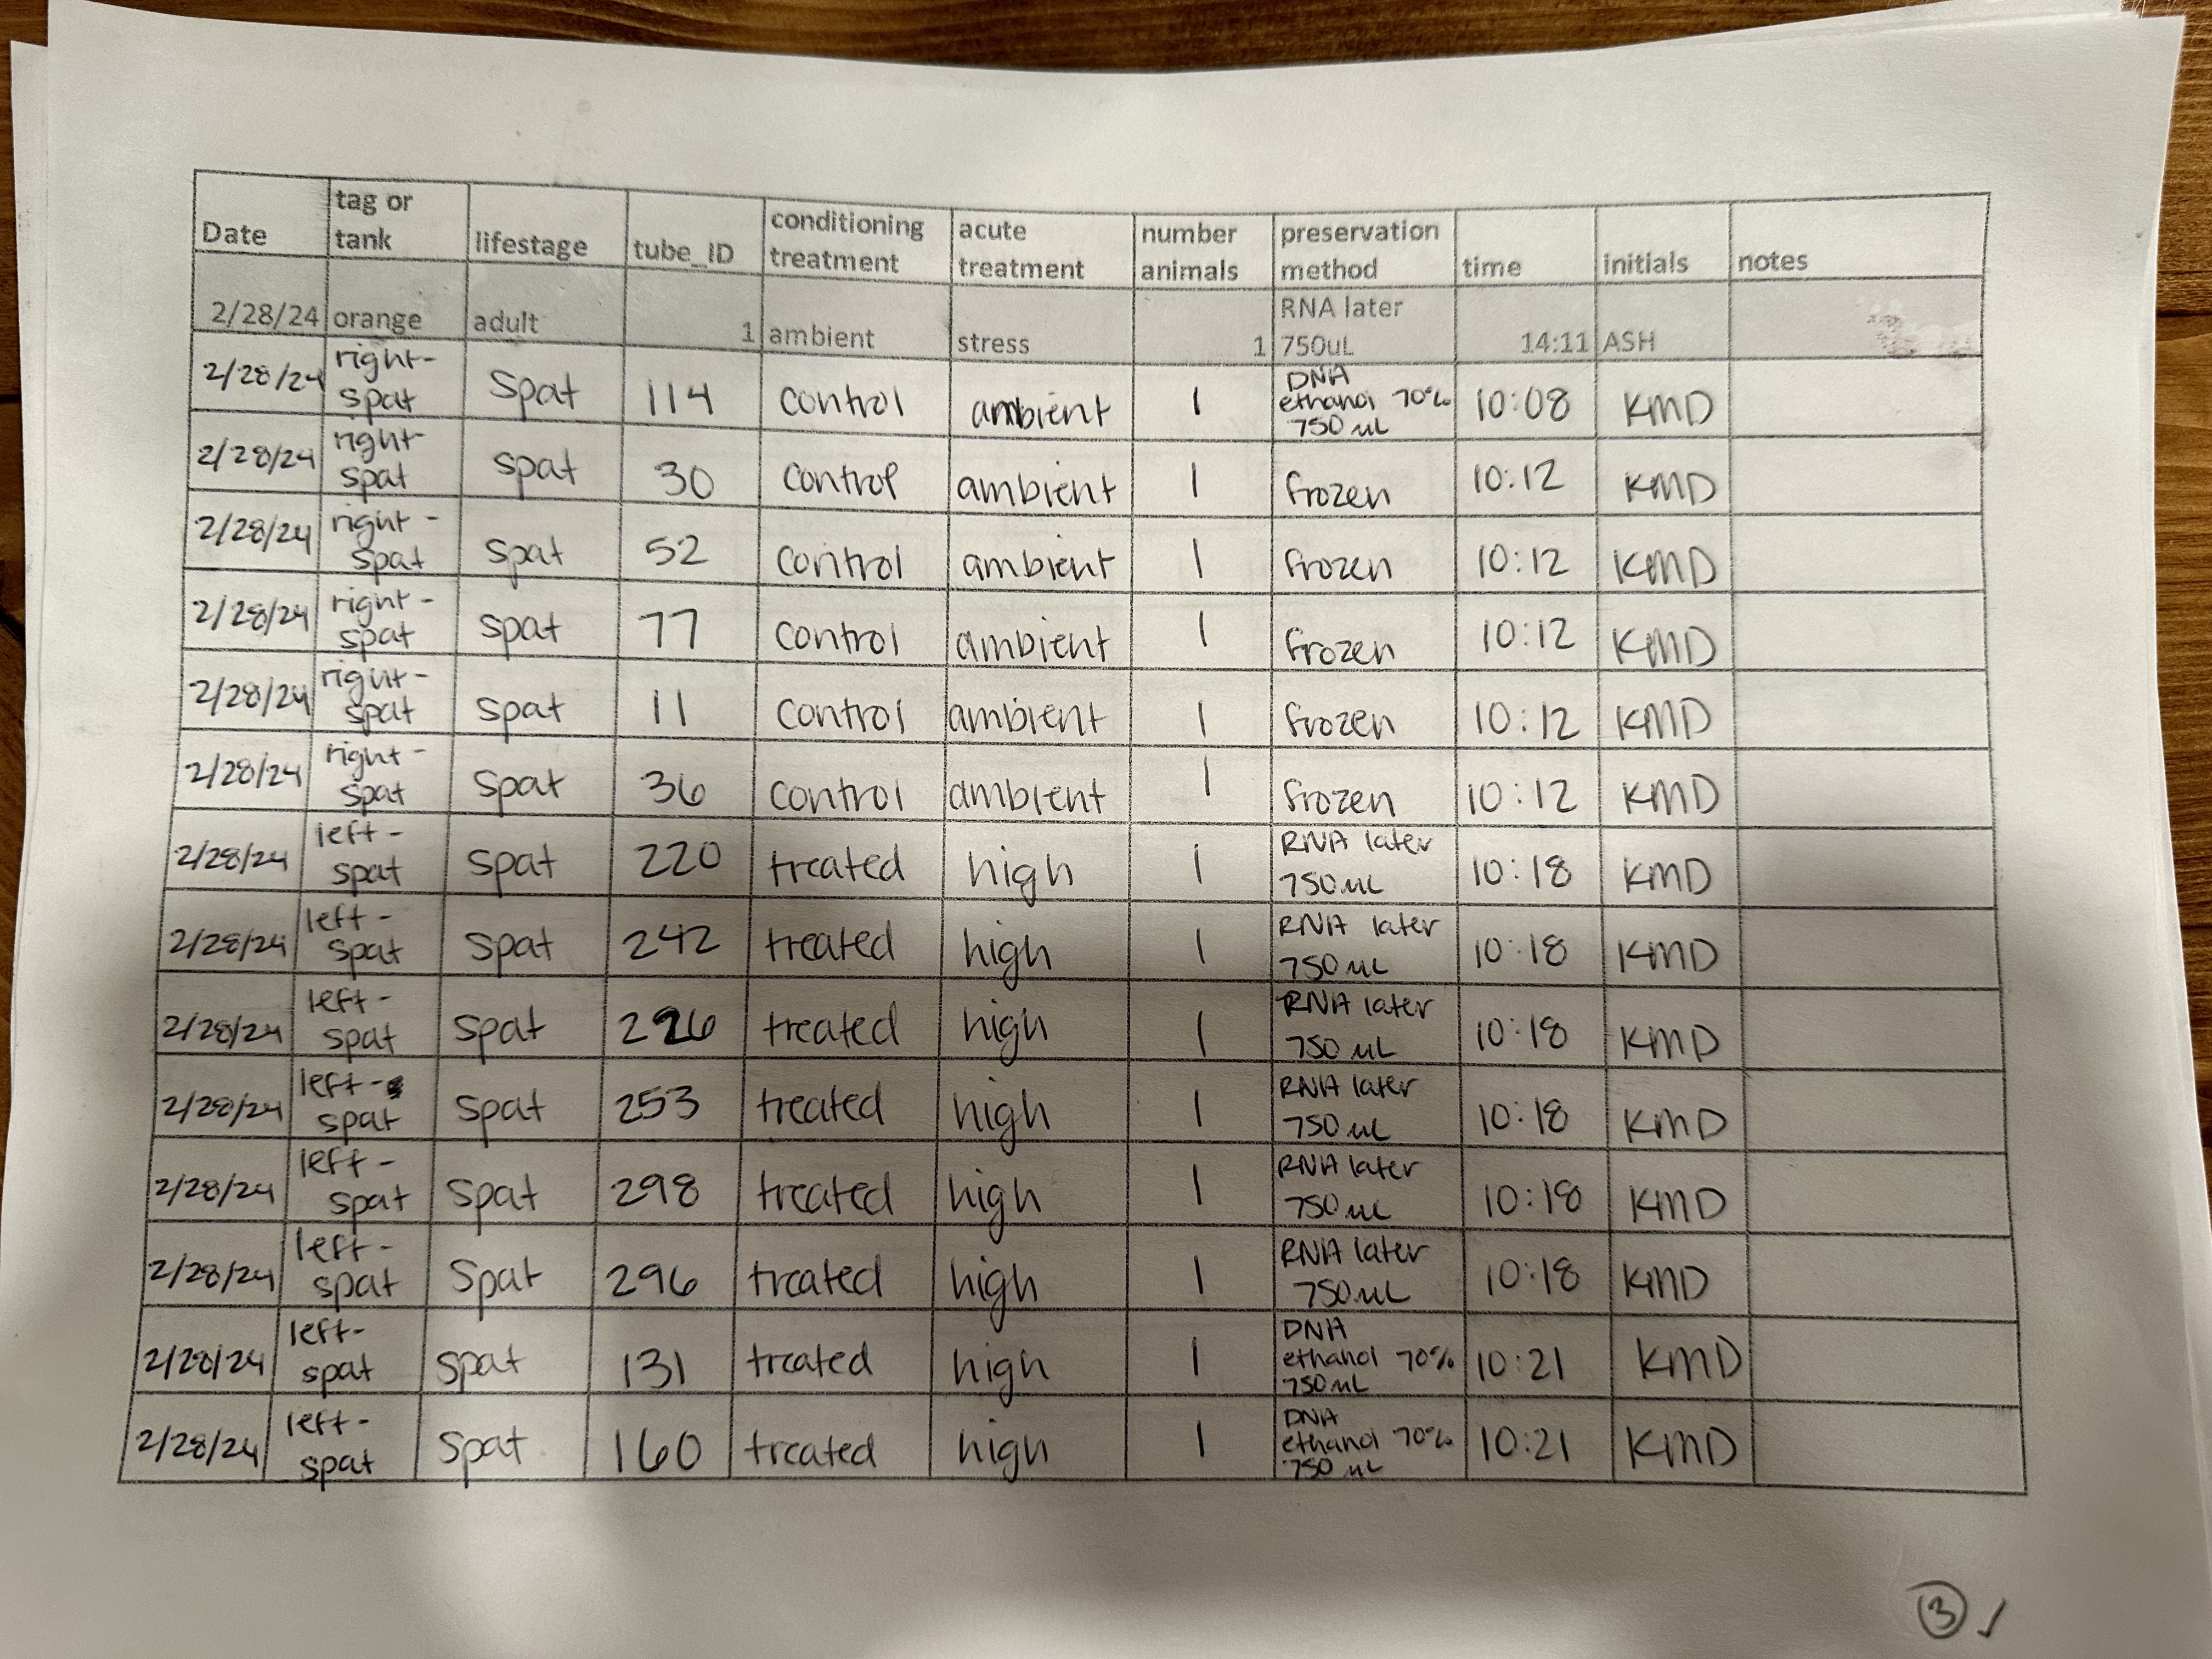 Date tag or tank lifestage tube_ID conditioning treatment acute treatment number animals preservation method time initials notes
2/28/24 orange adult 1 ambient stress 1 RNA later 750uL 14:11 ASH
2/28/24 right-spat spat 114 control ambient 1 DNA ethanol 70% 750uL 10:08 KMD
2/28/24 right-spat spat 30 control ambient 1 frozen 10:12 KMD
2/28/24 right-spat spat 52 control ambient 1 frozen 10:12 KMD
2/28/24 right-spat spat 77 control ambient 1 frozen 10:12 KMD
2/28/24 right-spat spat 11 control ambient 1 frozen 10:12 KMD
2/28/24 right-spat spat 36 control ambient 1 frozen 10:12 KMD
2/28/24 left-spat spat 220 treated high 1 RNA later 750uL 10:18 KMD
2/28/24 left-spat spat 242 treated high 1 RNA later 750uL 10:18 KMD
2/28/24 left-spat spat 226 treated high 1 RNA later 750uL 10:18 KMD
2/28/24 left-spat spat 253 treated high 1 RNA later 750uL 10:18 KMD
2/28/24 left-spat spat 298 treated high 1 RNA later 750uL 10:18 KMD
2/28/24 left-spat spat 296 treated high 1 RNA later 750uL 10:18 KMD
2/28/24 left-spat spat 131 treated high 1 DNA ethanol 70% 750uL 10:21 KMD
2/28/24 left-spat spat 160 treated high 1 DNA ethanol 70% 750uL 10:21 KMD
3